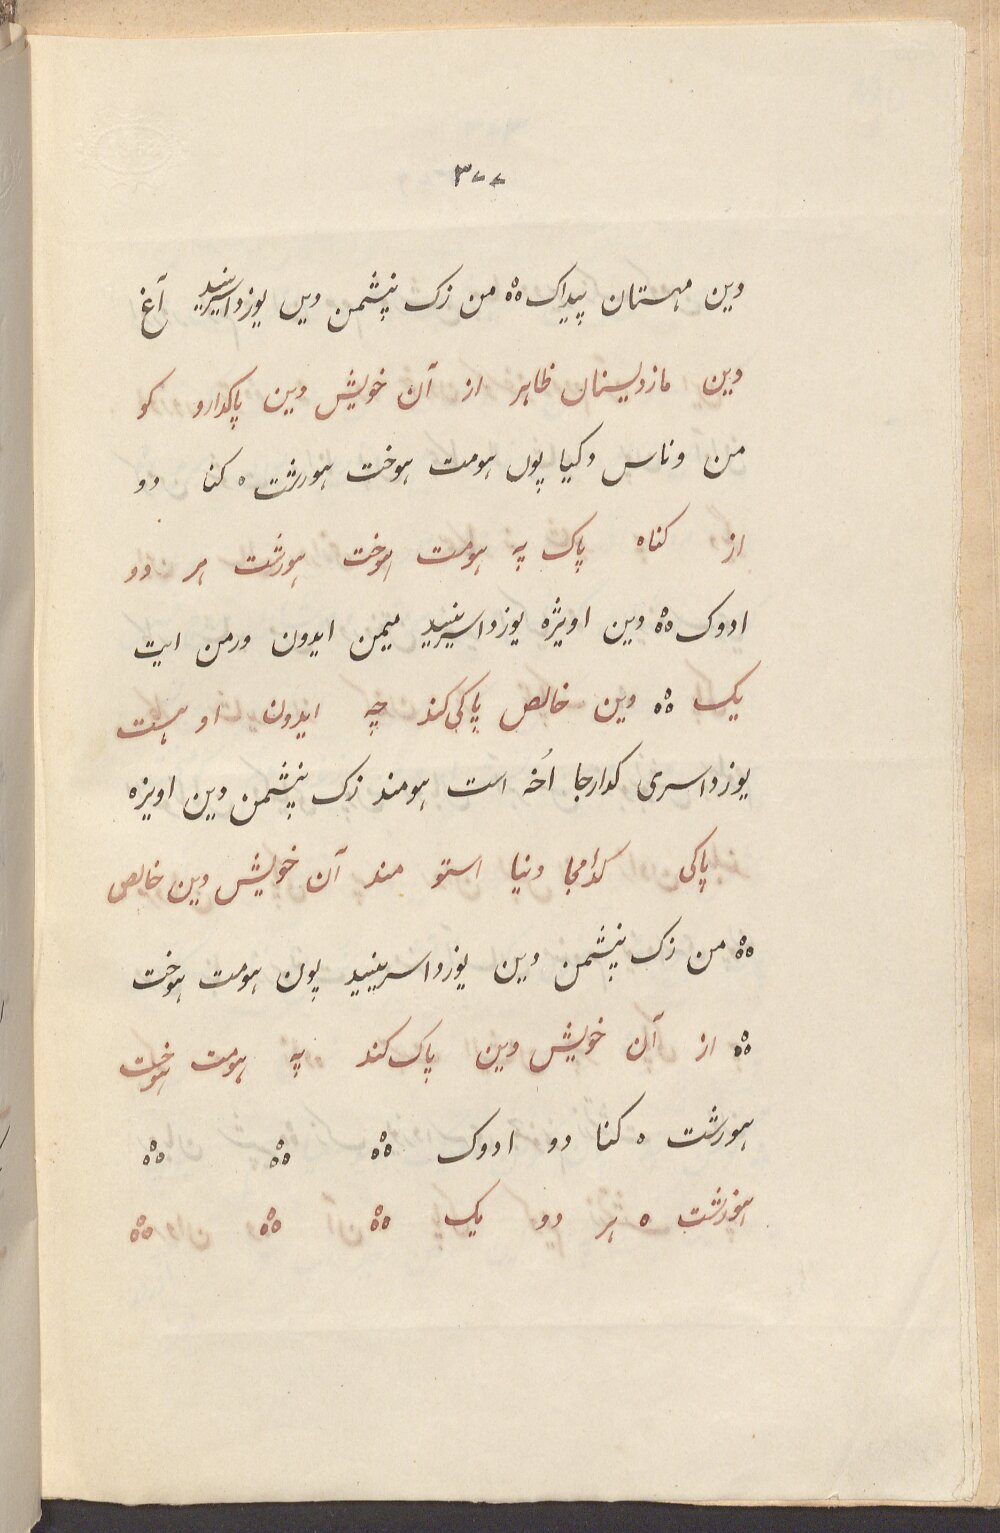 ۳۰۰
دین مهستان پیداک ⁘ من زک پنشمن دین یوزداسرینید آغ
دین مازدیسنان ظاهر از آن خویش دین پاکدارو کو
من وناس دکیا پون هومت هوخت هورشت ه کنا دو
از گناه پاک په هومت هوخت هورشت هر دو
ادوک ⁘ دین اویژه یوزداسرینید میمن ایدون ورمن ایت
یک ⁘ دین خالص پاکی کند چه ایدون او هست
یوزداسری کدارجا اُخه است هومند زک پنشمن دین اویزه
پاکی کدامجا دنیا استو مند آن خویش دین خالص
⁘ من زک پنشمن دین یوزداسرینید پون هومت هوخت
⁘ از آن خویش دین پاک کند په هومت هوخت
هورشت ه کنا دو ادوک ⁘ ⁘ ⁘
هورشت ه هر دو یک ⁘ ⁘ ⁘